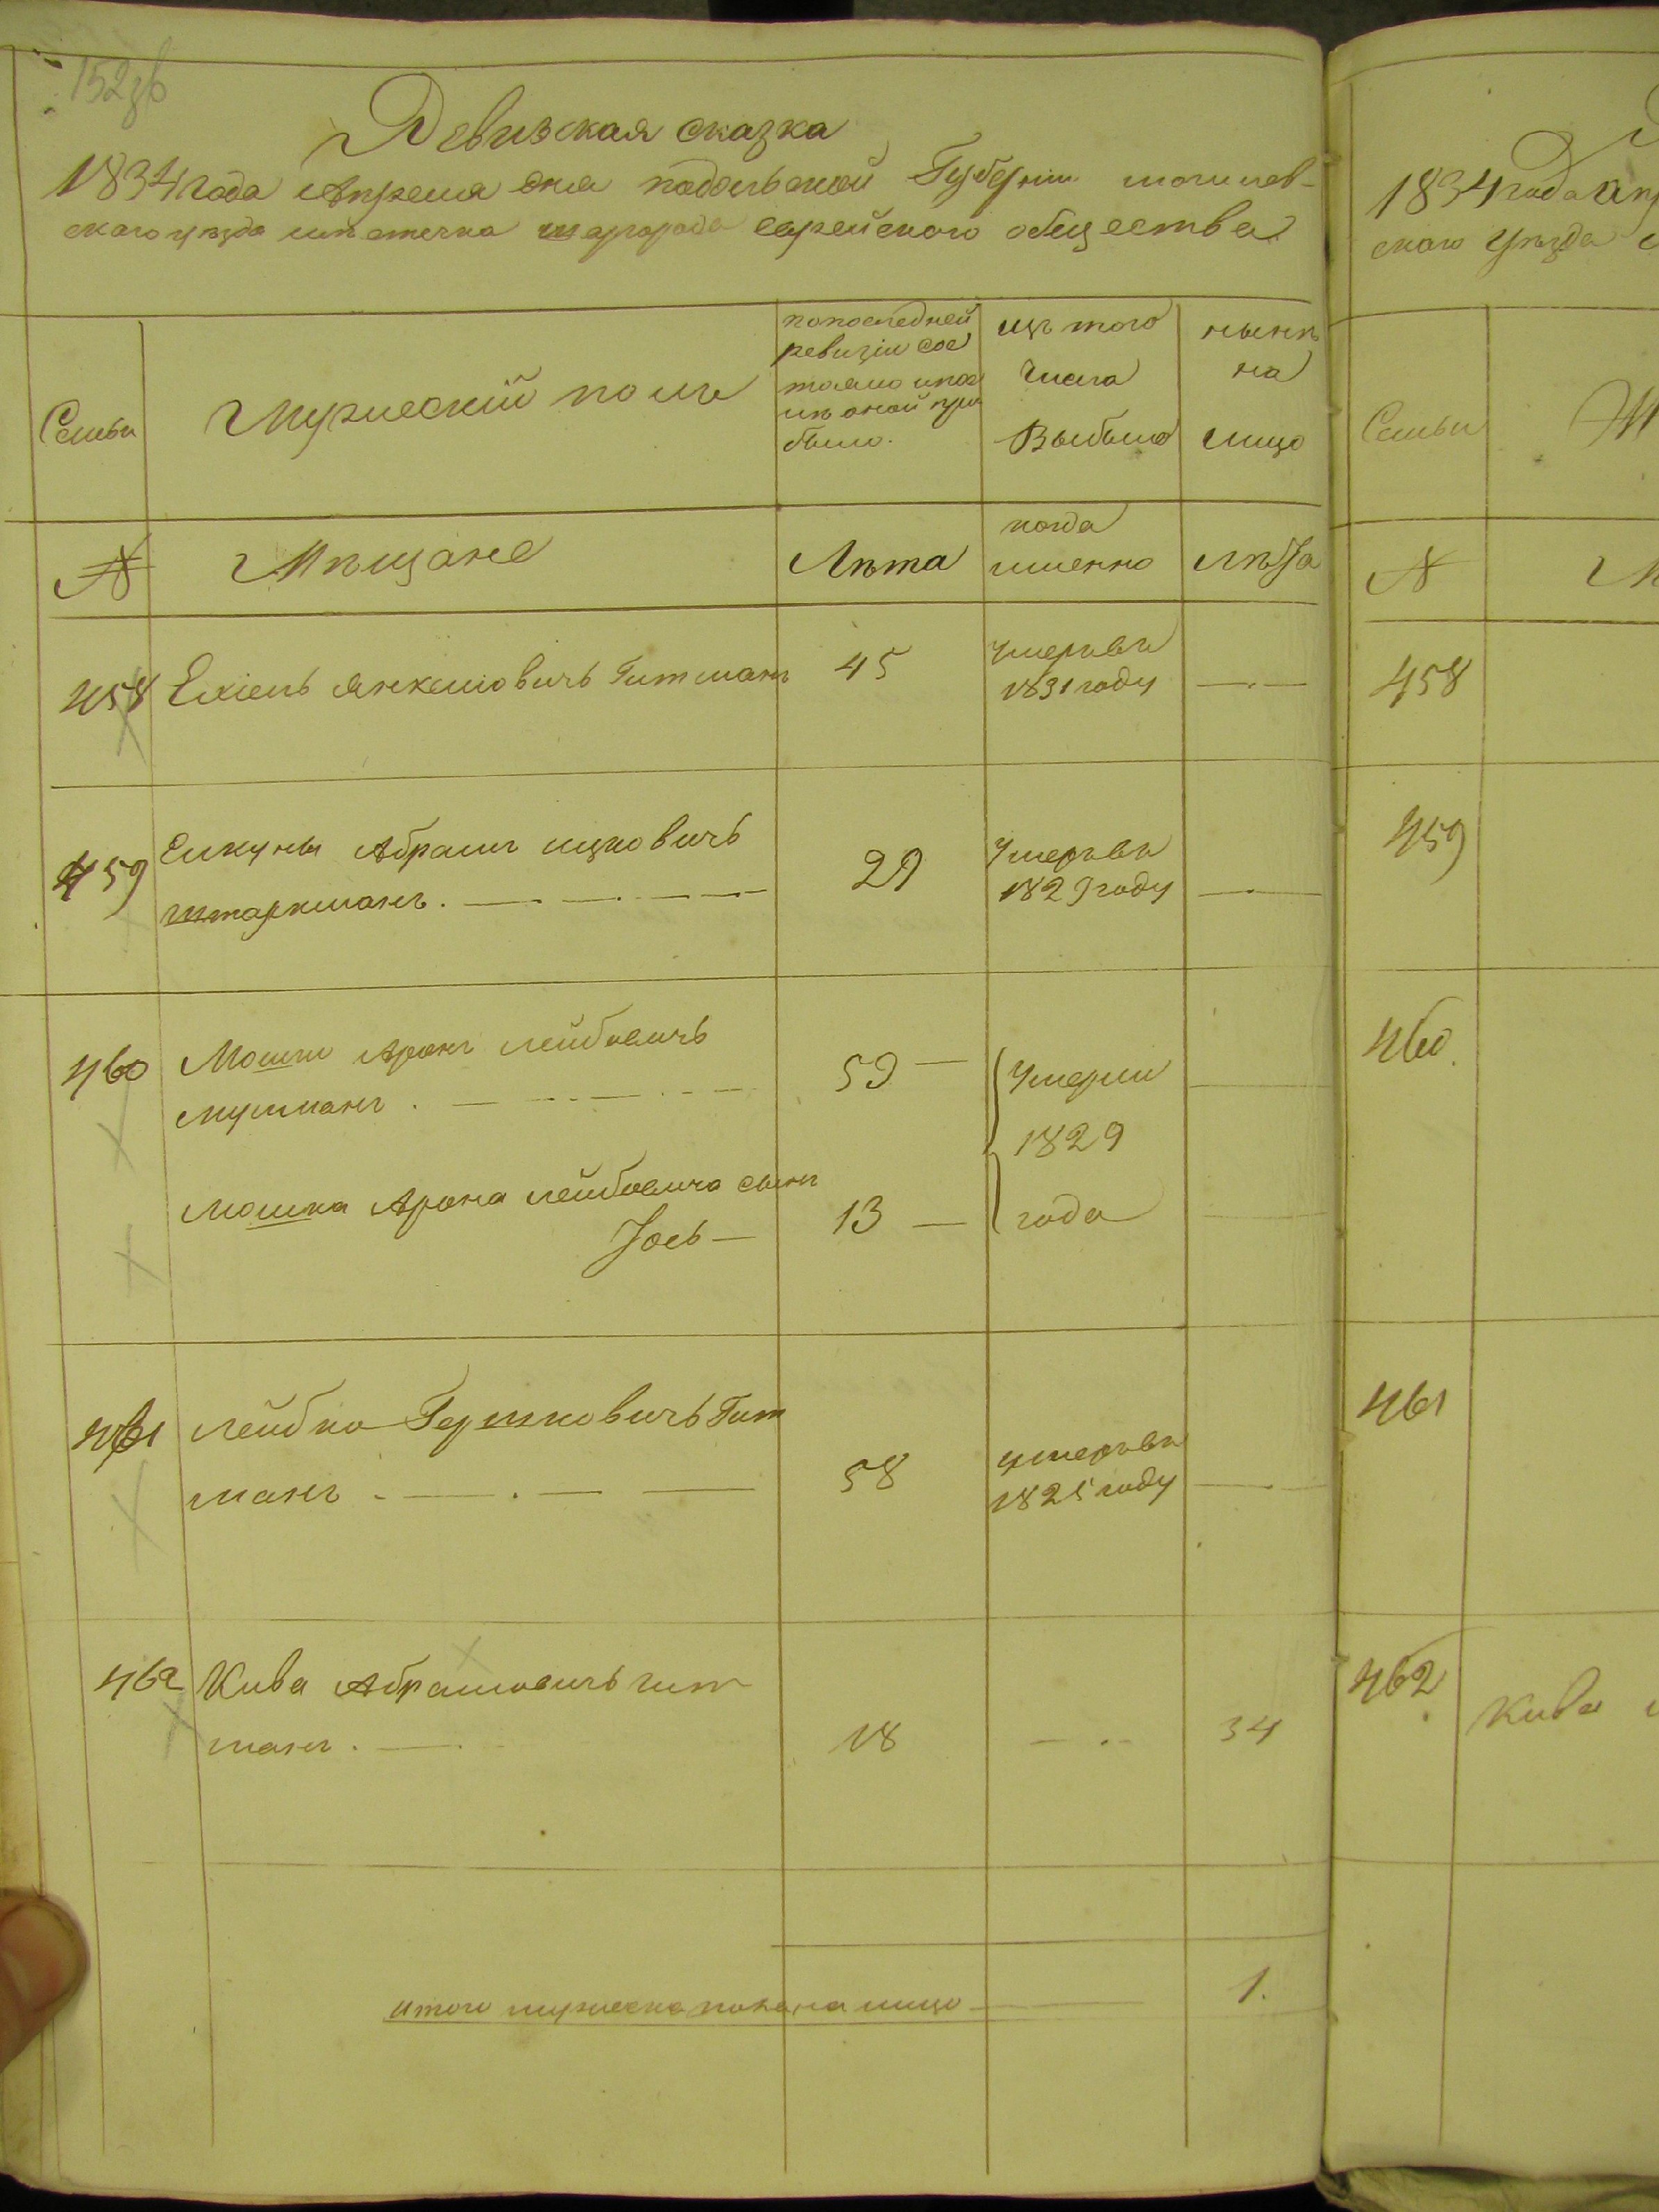 152зв
Ревизская сказка
1834 года Апреля дня подольской Губернии могилев-
ского уезда местечка шаргорода еврейского общества
Семьи
Мужеский полъ
по последней
ревизіи сос
тояло и пос
лѣ оной при
было.
изъ того
числа
Выбыло
нынѣ
на
лицо
№
Мѣщане
Лѣта
когда
именно
лѣта
458
Ехіель Янкелiовичъ Гитманъ
45
умеръ въ
1831 году
459
Абрамъ ицковичъ
штаркманъ
29
Умеръ въ
1829 году
460
Мошко Аронъ лейбовичъ
59
Умерли
1829
года
Мошка Арона лейбовича сынъ
Іось
13
461
лейбко Гершковичъ Гит
манъ
58
умеръ въ
1825 году
462
Кива Абрамовичъ гит
манъ
18
34
итого мужеска пола на лицо
1.
1834 года
ского уѣзда
Семьи
№
458
459
460
461
462
Кива